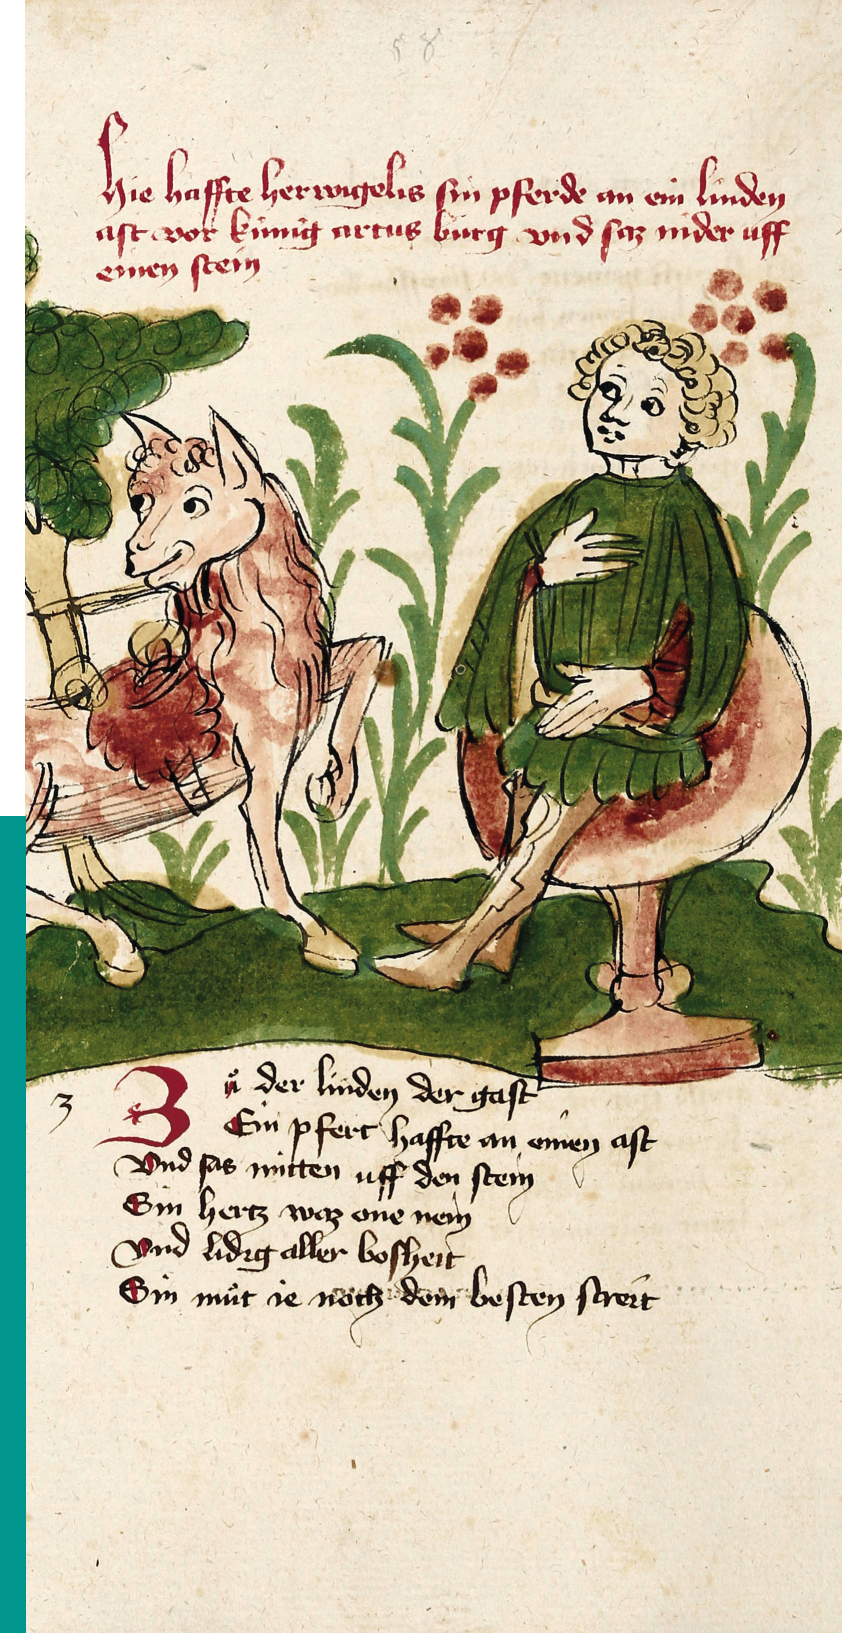 58
Hie haffte her wigelis sin pferde an ein linden
ast vor kúnig artus burg vnd saz nider uff
einen stein
3
Zů der linden der gast
Ein pfert haffte an einen ast
Vnd sas mitten uff den stein
Sin hertz waz one nein
Vnd lidig aller bosheit
Sin můt ie noch dem besten streit